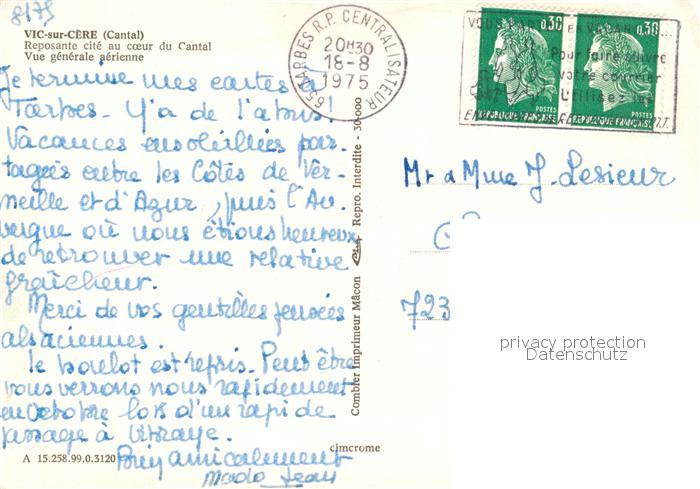 8175
VIC-sur-CÈRE (Cantal)
Reposante cité au cœur du Cantal
Vue générale aérienne
Je termine mes cartes à
Tarbes - Y'a de l'abus!
Vacances ensoleillées par-
tagées entre les Côtes de Ver-
meille et d'Azur, puis l'Au-
vergne où nous étions heureux
de retrouver une relative
fraîcheur.
Merci de vos gentilles pensées
alsaciennes.
Le boulot est repris. Peut être
vous verrons nous rapidement
en octobre lors d'un rapide
passage à Vibraye.
Bien amicalement
Mado Jean
A 15.258.99.0.3120
cimcrome
Combier Imprimeur Mâcon
Repro. Interdite - 30-000
65 TARBES R.P. CENTRALISATEUR
20H30
18-8
1975
VOUS PARTEZ EN VACANCES...
Pour faire suivre
votre courrier
Utilisez
0,30
0,30
POSTES
POSTES
REPUBLIQUE FRANÇAISE
REPUBLIQUE FRANÇAISE
Mr et Mme J. Lesieur
723
privacy protection
Datenschutz